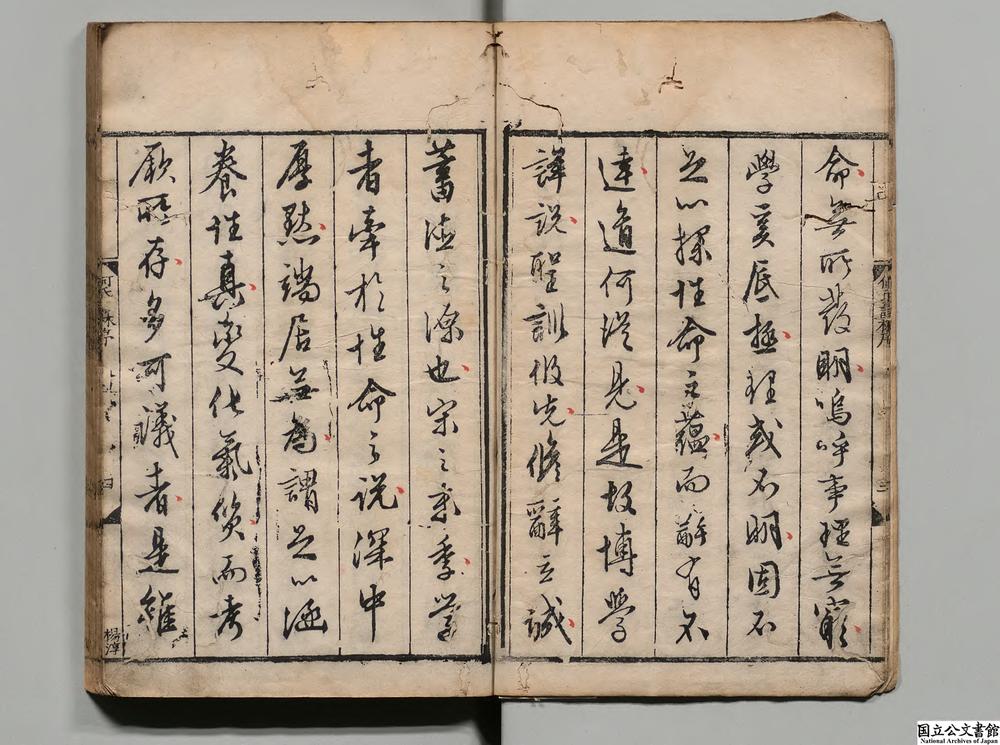 命無所發明嗚呼事理無窮
學變底極理或不明固不
足以探性命之蘊而辭有不
達道何從見是故博學
詳說聖訓攸先修辭立誠
蓄德之源也宋之季學
者牽於性命之說深中
厚默端居無為謂足以涵
養性真變化氣質而考
厥所存多可議者是雖
楊淳
国立公文書館
National Archives of Japan